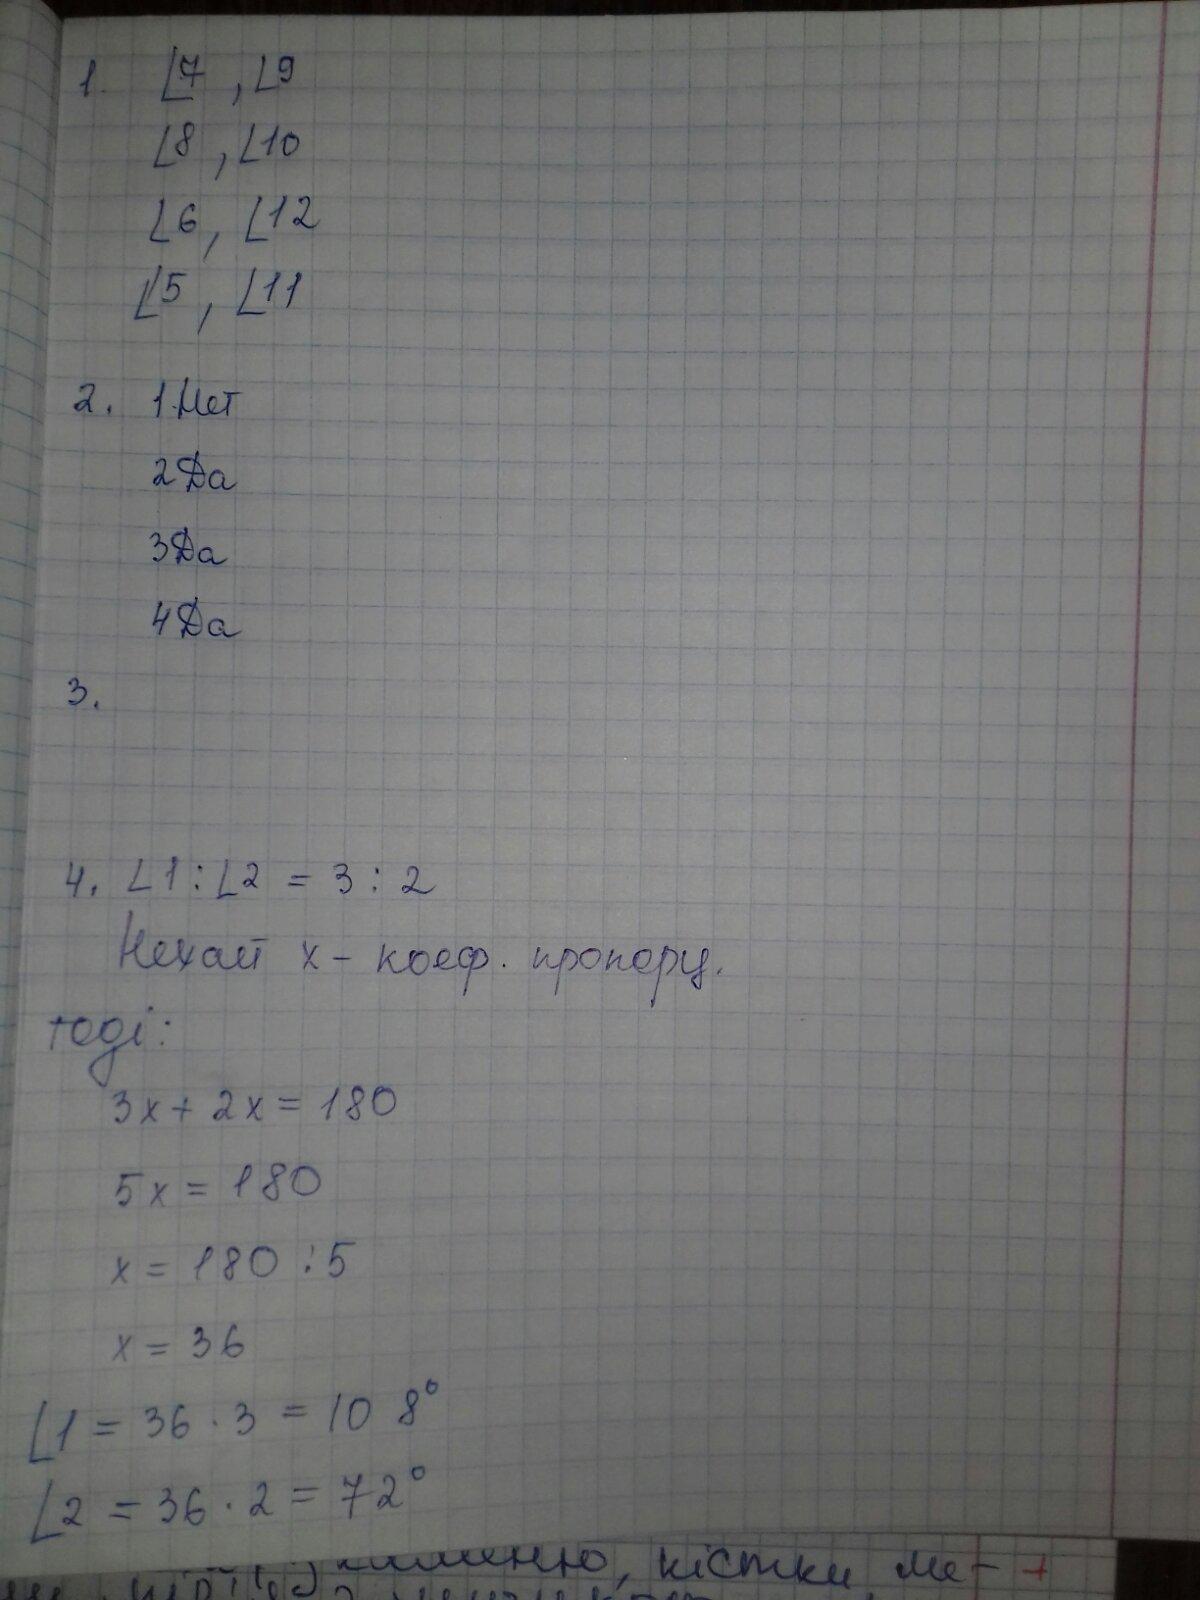 1. ∠7, ∠9
∠8, ∠10
∠6, ∠12
∠5, ∠11
2. 1.Нет
2 Да
3 Да
4 Да
3.
4. ∠1 : ∠2 = 3 : 2
Нехай х - коеф. пропорц.
тоді:
3х + 2х = 180
5х = 180
х = 180 : 5
х = 36
∠1 = 36 · 3 = 108°
∠2 = 36 · 2 = 72°
кістки ме- +